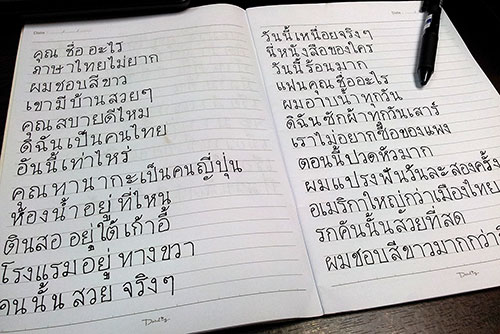 คุณ ชื่อ อะไร
ภาษาไทยไม่ยาก
ผมชอบสีขาว
เขามีบ้านสวยๆ
คุณสบายดีไหม
ดิฉันเป็นคนไทย
อันนี้เท่าไหร่
คุณ ทานากะเป็นคนญี่ปุ่น
ห้องน้ำอยู่ ที่ไหน
ดินสอ อยู่ใต้ เก้าอี้
โรงแรมอยู่ ทางขวา
คนนั้น สวย จริงๆ
วันนี้ เหนื่อยจริงๆ
นี่หนังสือของใคร
วันนี้ ร้อนมาก
แฟนคุณ ชื่ออะไร
ผมอาบน้ำทุกวัน
ดิฉัน ซักผ้าทุกวันเสาร์
เราไม่อยากซื้อของแพง
ตอนนี้ปวดหัวมาก
ผมแปรงฟันวันละ สองครั้ง
อเมริกาใหญ่กว่าเมืองไทย
รถคันนั้นสวยที่สุด
ผมชอบสีขาวมากกว่า